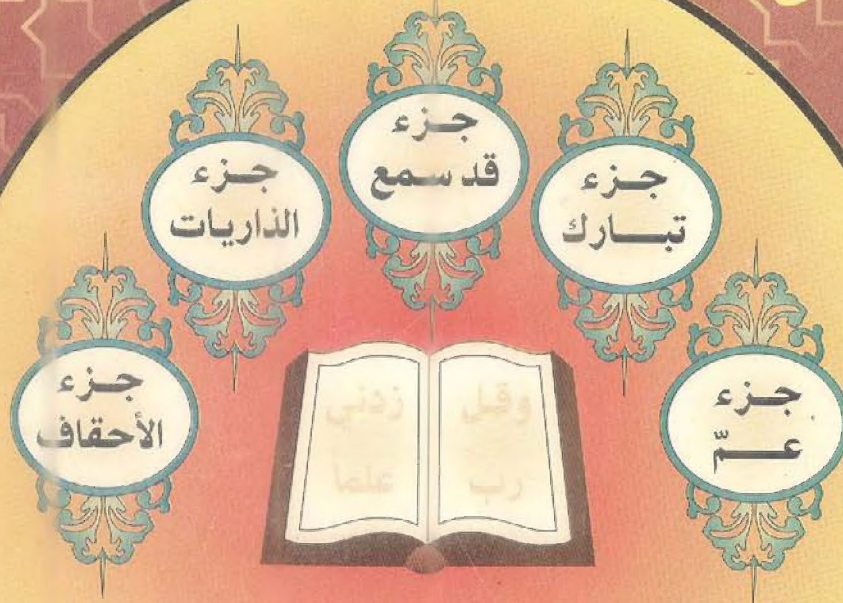 جزء
عمّ
جزء
تبارك
جزء
قد سمع
جزء
الذاريات
جزء
الأحقاف
وقل
رب
زدني
علما